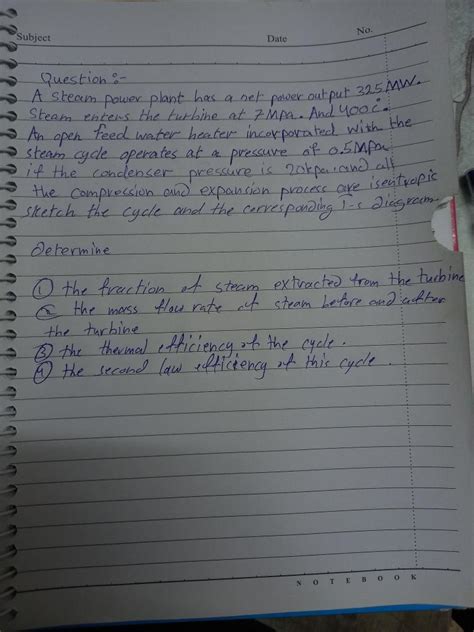 Subject Date No.
Question :-
A steam power plant has a net power output 325MW.
Steam enters the turbine at 7MPa. And 400c.
An open feed water heater incorporated with the
steam cycle operates at a pressure of 0.5Mpa
if the condenser pressure is 20kpa. and all
the compression and expansion process are isentropic
sketch the cycle and the corresponding T-s diagram.
Determine
① the fraction of steam extracted from the turbine
② the mass flow rate of steam before and after
the turbine
③ the thermal efficiency of the cycle.
④ the second law efficiency of this cycle.
NOTEBOOK